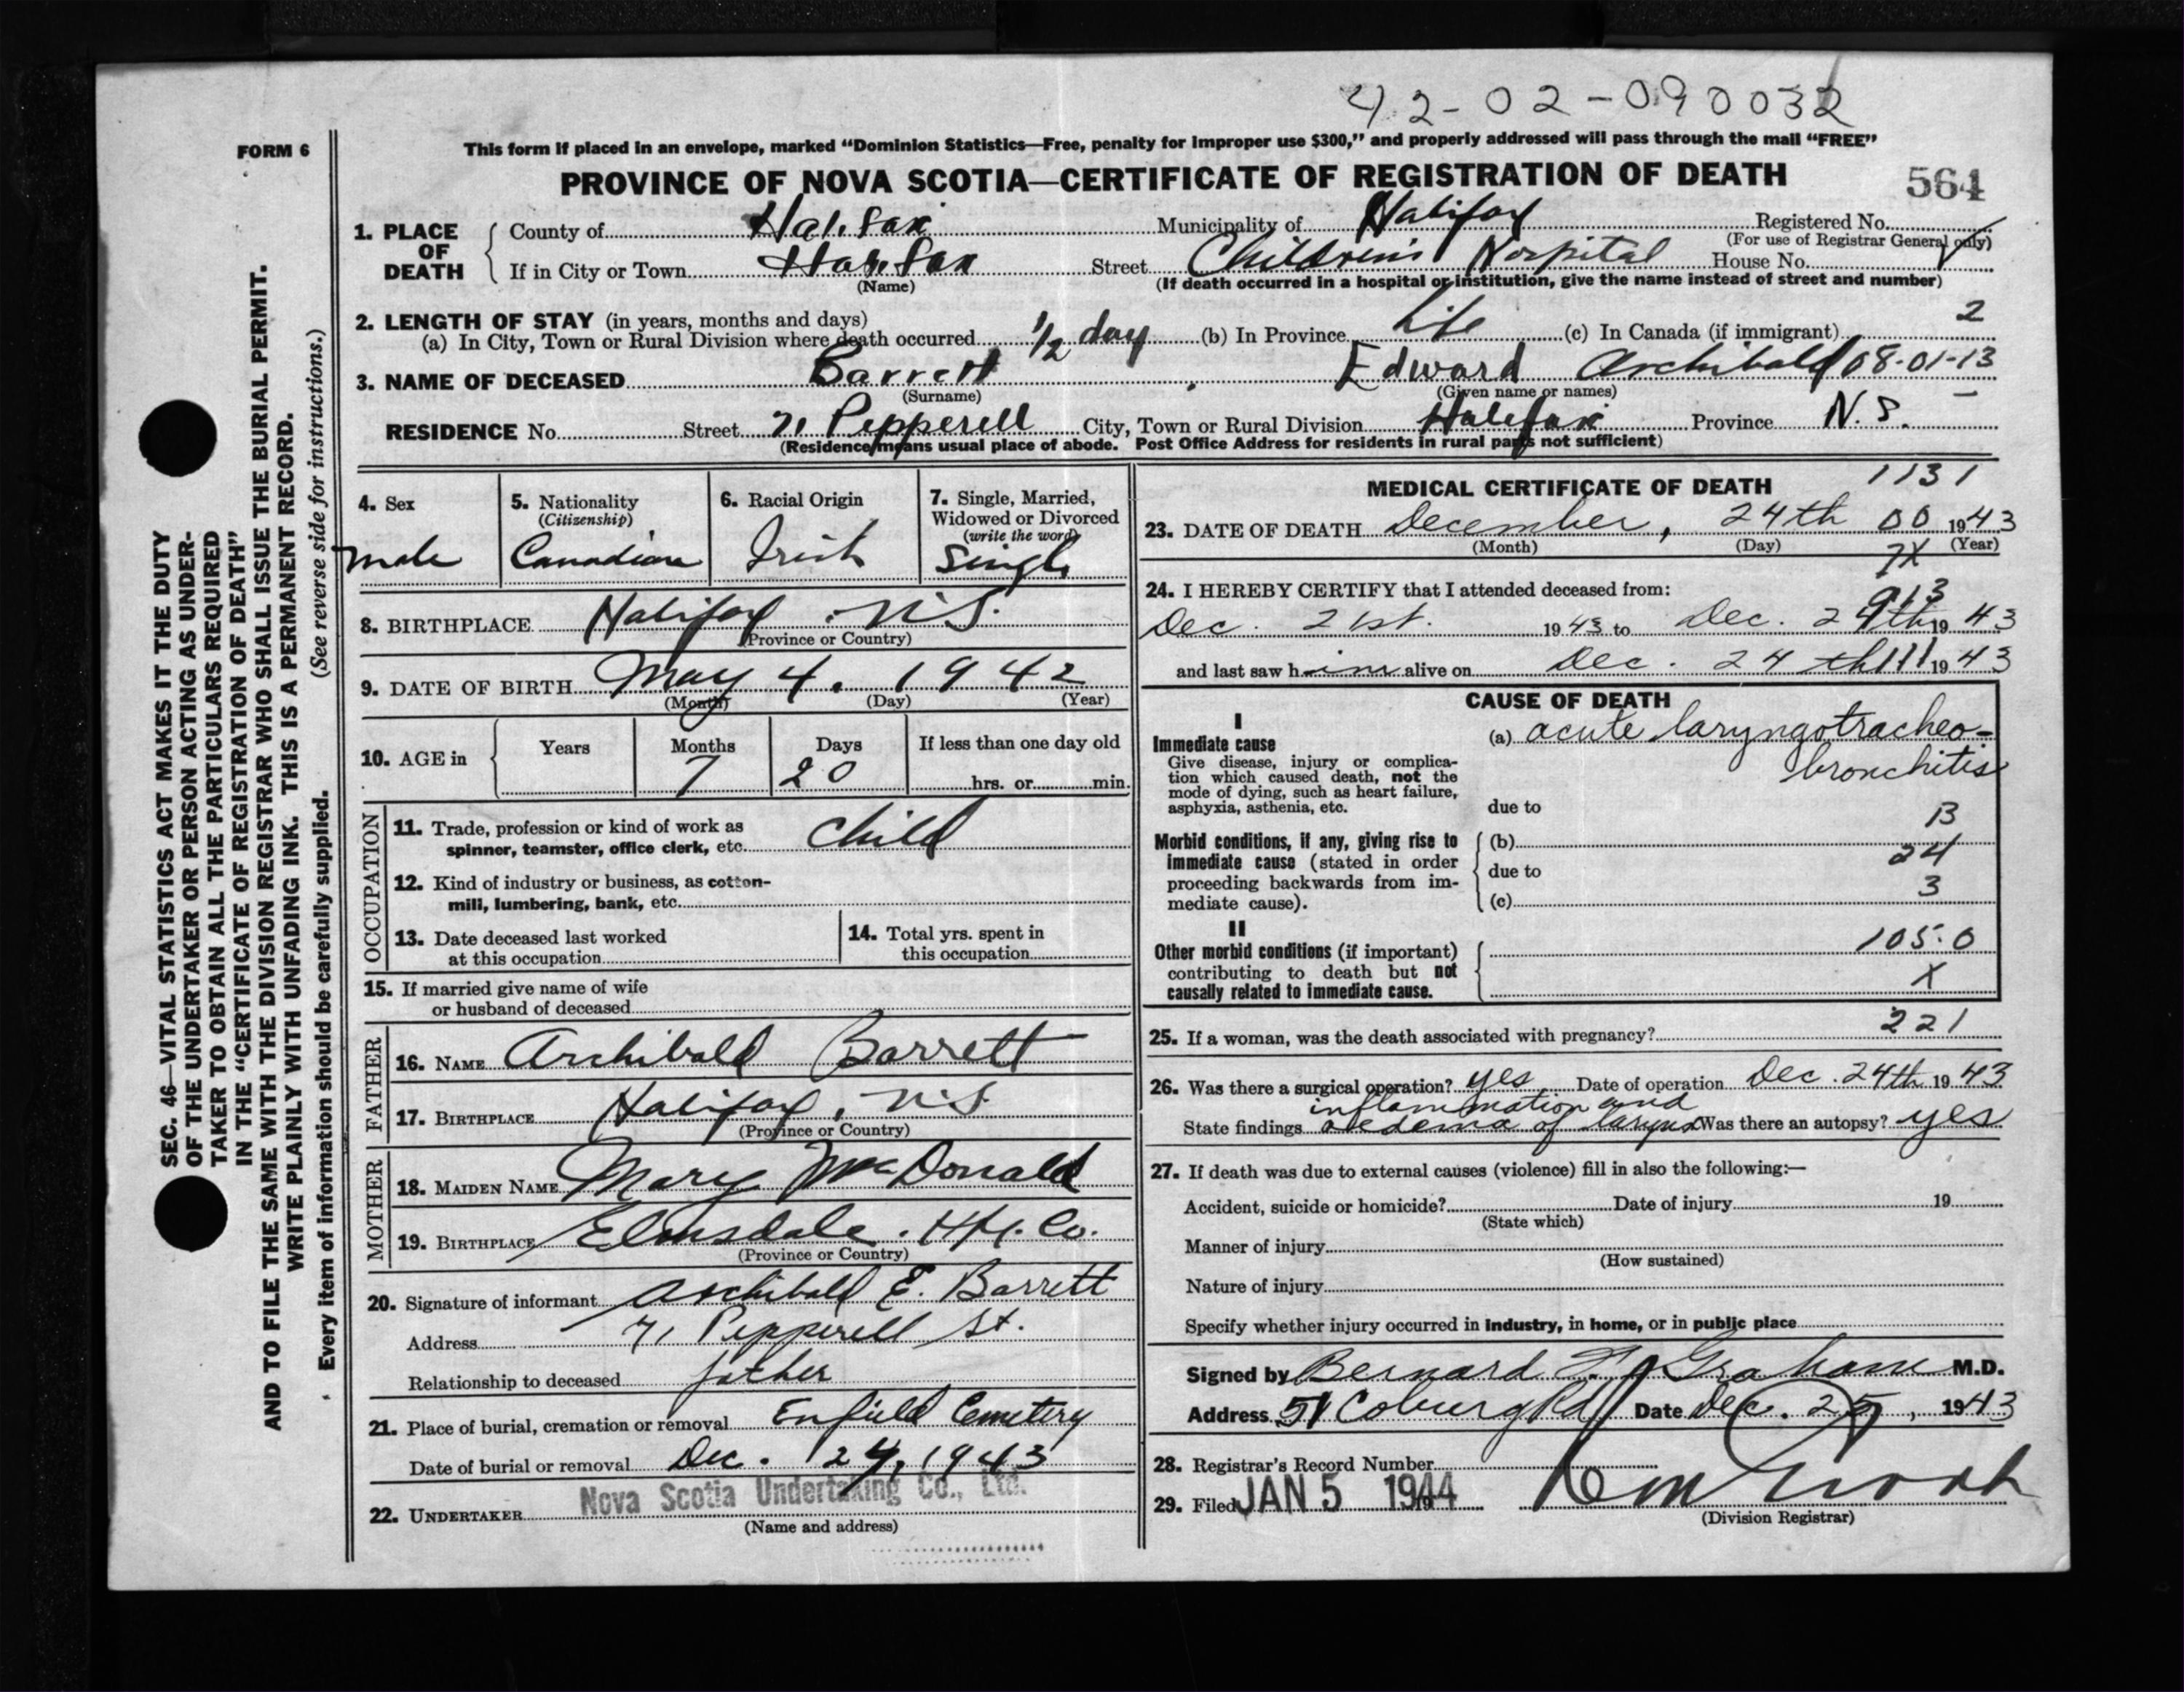 42-02-090032
FORM 6
This form if placed in an envelope, marked “Dominion Statistics—Free, penalty for improper use $300,” and properly addressed will pass through the mail “FREE”
PROVINCE OF NOVA SCOTIA—CERTIFICATE OF REGISTRATION OF DEATH 564
1. PLACE OF DEATH
County of Halifax Municipality of Halifax Registered No.
(For use of Registrar General only)
If in City or Town Halifax Street Children's Hospital House No.
(Name) (If death occurred in a hospital or institution, give the name instead of street and number)
2. LENGTH OF STAY (in years, months and days) 2
(a) In City, Town or Rural Division where death occurred 1/2 day (b) In Province Life (c) In Canada (if immigrant)
3. NAME OF DECEASED Barrett, Edward Archibald 08-01-13
(Surname) (Given name or names)
RESIDENCE No. Street 71 Pepperell City, Town or Rural Division Halifax Province N.S.
(Residence means usual place of abode. Post Office Address for residents in rural parts not sufficient)
4. Sex
male
5. Nationality
(Citizenship)
Canadian
6. Racial Origin
Irish
7. Single, Married,
Widowed or Divorced
(write the word)
Single
8. BIRTHPLACE Halifax. N.S.
(Province or Country)
9. DATE OF BIRTH May 4, 1942
(Month) (Day) (Year)
10. AGE in Years Months Days If less than one day old
7 20 hrs. or min.
OCCUPATION
11. Trade, profession or kind of work as
spinner, teamster, office clerk, etc. Child
12. Kind of industry or business, as cotton-
mill, lumbering, bank, etc.
13. Date deceased last worked
at this occupation
14. Total yrs. spent in
this occupation
15. If married give name of wife
or husband of deceased
FATHER
16. NAME Archibald Barrett
17. BIRTHPLACE Halifax, N.S.
(Province or Country)
MOTHER
18. MAIDEN NAME Mary McDonald
19. BIRTHPLACE Elmsdale. Hfx. Co.
(Province or Country)
20. Signature of informant Archibald E. Barrett
Address 71 Pepperell St.
Relationship to deceased father
21. Place of burial, cremation or removal Enfield Cemetery
Date of burial or removal Dec. 24, 1943
22. UNDERTAKER Nova Scotia Undertaking Co., Ltd.
(Name and address)
MEDICAL CERTIFICATE OF DEATH 1131
23. DATE OF DEATH December, 24th 00 1943
(Month) (Day) (Year)
7X
24. I HEREBY CERTIFY that I attended deceased from:
913
Dec. 21st. 1943 to Dec. 24th 1943
and last saw him alive on Dec. 24th 111 1943
CAUSE OF DEATH
I
Immediate cause
Give disease, injury or complica-
tion which caused death, not the
mode of dying, such as heart failure,
asphyxia, asthenia, etc.
(a) acute laryngotracheo-
bronchitis
due to 13
Morbid conditions, if any, giving rise to
immediate cause (stated in order
proceeding backwards from im-
mediate cause).
(b)
due to 24
(c) 3
II
Other morbid conditions (if important)
contributing to death but not
causally related to immediate cause.
105.0
X
25. If a woman, was the death associated with pregnancy? 221
26. Was there a surgical operation? yes. Date of operation Dec. 24th 1943
State findings inflammation and oedema of larynx Was there an autopsy? yes
27. If death was due to external causes (violence) fill in also the following:—
Accident, suicide or homicide? Date of injury 19
(State which)
Manner of injury
(How sustained)
Nature of injury
Specify whether injury occurred in industry, in home, or in public place
Signed by Bernard Graham M.D.
Address 51 Coburg Rd Date Dec. 25, 1943
28. Registrar's Record Number
29. Filed JAN 5 1944
(Division Registrar)
SEC. 46—VITAL STATISTICS ACT MAKES IT THE DUTY
OF THE UNDERTAKER OR PERSON ACTING AS UNDER-
TAKER TO OBTAIN ALL THE PARTICULARS REQUIRED
IN THE “CERTIFICATE OF REGISTRATION OF DEATH”
AND TO FILE THE SAME WITH THE DIVISION REGISTRAR WHO SHALL ISSUE THE BURIAL PERMIT.
WRITE PLAINLY WITH UNFADING INK. THIS IS A PERMANENT RECORD.
Every item of information should be carefully supplied. (See reverse side for instructions.)